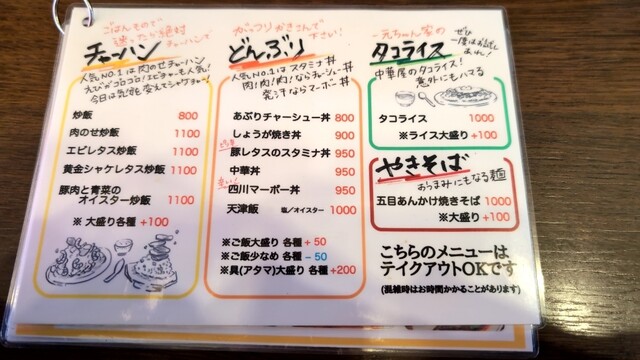 ごはんもので
迷ったら絶対
チャーハンで
チャーハン
人気NO.1は肉のせチャーハン
えびがゴロゴロ!エビチャーも人気!
今日は気分を変えてシャケチャー!
炒飯 800
肉のせ炒飯 1100
エビレタス炒飯 1100
黄金シャケレタス炒飯 1100
豚肉と青菜の
オイスター炒飯 1100
※ 大盛り各種 +100
がっつりかきこんで
下さい!
どんぶり
人気NO.1はスタミナ丼
肉!肉!肉!ならチャーシュー丼
発汗ならマーボー丼
あぶりチャーシュー丼 800
しょうが焼き丼 900
豚レタスのスタミナ丼 950
中華丼 950
辛い!
四川マーボー丼 950
天津飯 塩/オイスター 1000
※ご飯大盛り 各種 + 50
※ご飯少なめ 各種 − 50
※具(アタマ)大盛り 各種 +200
一元ちゃん家の
タコライス
ぜひ
一度はお試し
あれ!
中華屋のタコライス!
意外にもハマる
タコライス 1000
※ライス大盛り +100
やきそば
おつまみにもなる麺
五目あんかけ焼きそば 1000
※大盛り +100
こちらのメニューは
テイクアウトOKです
(混雑時はお時間かかることがあります)